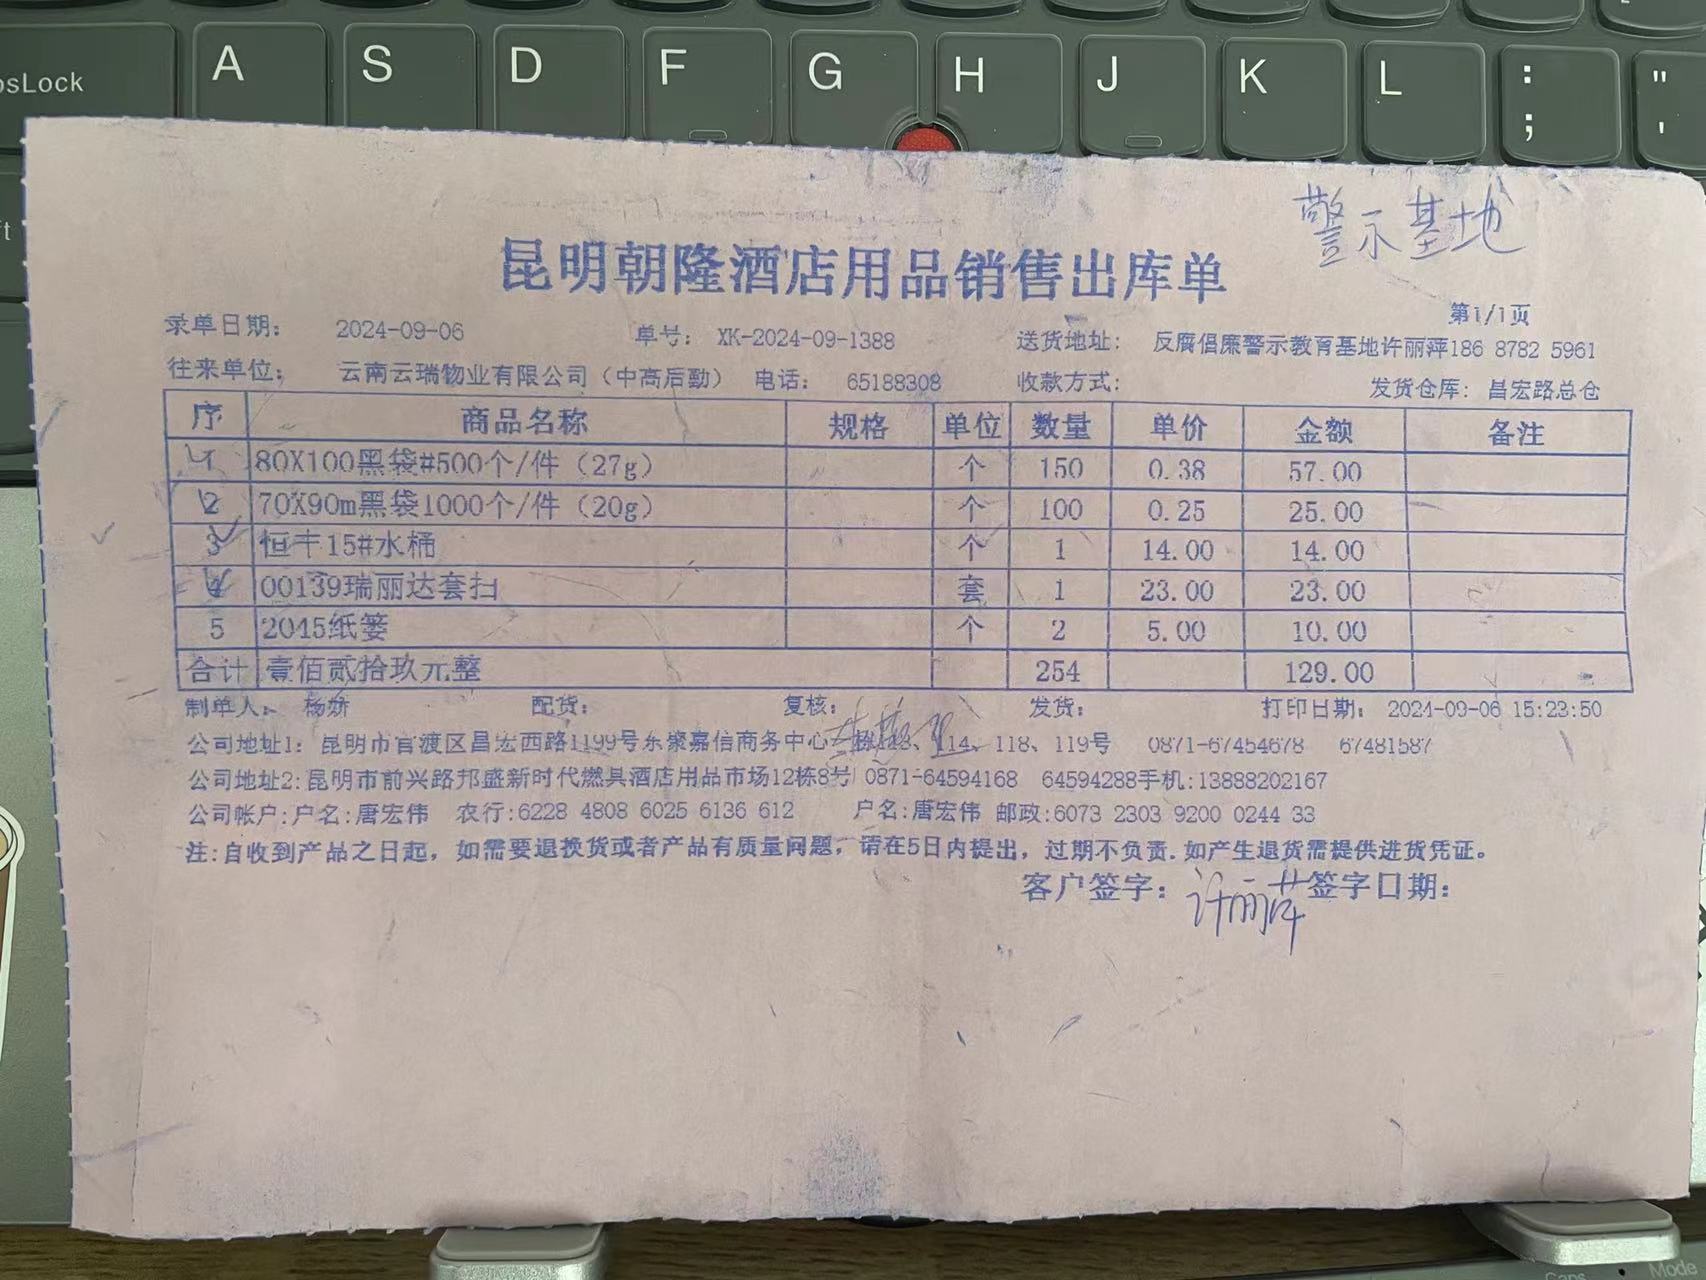 osLock A S D F G H J K L : ; " '
警示基地
昆明朝隆酒店用品销售出库单
第1/1页
录单日期: 2024-09-06 单号: XK-2024-09-1388 送货地址: 反腐倡廉警示教育基地许丽萍186 8782 5961
往来单位: 云南云瑞物业有限公司(中高后勤) 电话: 65188308 收款方式: 发货仓库: 昌宏路总仓
序 商品名称 规格 单位 数量 单价 金额 备注
1 80X100黑袋#500个/件(27g) 个 150 0.38 57.00
2 70X90m黑袋1000个/件(20g) 个 100 0.25 25.00
3 恒丰15#水桶 个 1 14.00 14.00
4 00139瑞丽达套扫 套 1 23.00 23.00
5 2045纸篓 个 2 5.00 10.00
合计 壹佰贰拾玖元整 254 129.00
制单人: 杨娇 配货: 复核: 发货: 打印日期: 2024-09-06 15:23:50
公司地址1: 昆明市官渡区昌宏西路1199号东聚嘉信商务中心 114、118、119号 0871-67454678 67481587
公司地址2:昆明市前兴路邦盛新时代燃具酒店用品市场12栋8号 0871-64594168 64594288手机:13888202167
公司帐户:户名:唐宏伟 农行:6228 4808 6025 6136 612 户名:唐宏伟 邮政:6073 2303 9200 0244 33
注:自收到产品之日起, 如需要退换货或者产品有质量问题, 请在5日内提出, 过期不负责. 如产生退货需提供进货凭证。
客户签字: 许丽萍 签字日期:
Mode